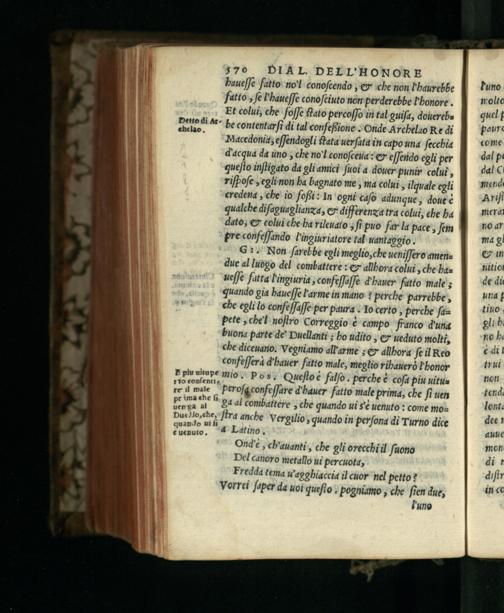 570 DIAL. DELL'HONORE
hauesse fatto no'l conoscendo, & che non l'haurebbe
fatto, se l'hauesse conosciuto non perderebbe l'honore.
Et colui, che fosse stato percosso in tal guisa, douereb-
Detto di Ar-
chelao.
be contentarsi di tal confessione. Onde Archelao Re di
Macedonia, essendogli stata uersata in capo una secchia
d'acqua da uno, che no'l conosceua: & essendo egli per
questo instigato da gli amici suoi a douer punir colui,
rispose, egli non ha bagnato me, ma colui, ilquale egli
credeua, che io fossi: In ogni caso adunque, doue è
qualche disaguaglianza, & differenza tra colui, che ha
dato, & colui che ha rileuato, si puo far la pace, sem
pre confessando l'ingiuriatore tal uantaggio.
G I. Non sarebbe egli meglio, che uenissero amen-
due al luogo del combattere: & allhora colui, che ha-
uesse fatta l'ingiuria, confessasse d'hauer fatto male;
quando gia hauesse l'arme in mano? perche parrebbe,
che egli lo confessasse per paura. Io certo, perche sa-
pete, che'l nostro Correggio è campo franco d'una
buona parte de' Duellanti; ho udito, & ueduto molti,
che diceuano. Vegniamo all'arme; & allhora se il Reo
confesserà d'hauer fatto male, meglio rihauerò l'honor
E piu uitupe
rio confessa-
re il male
prima che si
uenga al
Duello, che,
quando ui si
è uenuto.
mio. POS. Questo è falso. perche è cosa piu uitu-
perosa confessare d'hauer fatto male prima, che si uen
ga al combattere, che quando ui s'è uenuto: come mo-
stra anche Vergilio, quando in persona di Turno dice
a Latino.
Ond'è, ch'auanti, che gli orecchi il suono
Del canoro metallo ui percuota,
Fredda tema u'agghiaccia il cuor nel petto?
Vorrei saper da uoi questo. pogniamo, che sien due,
l'uno